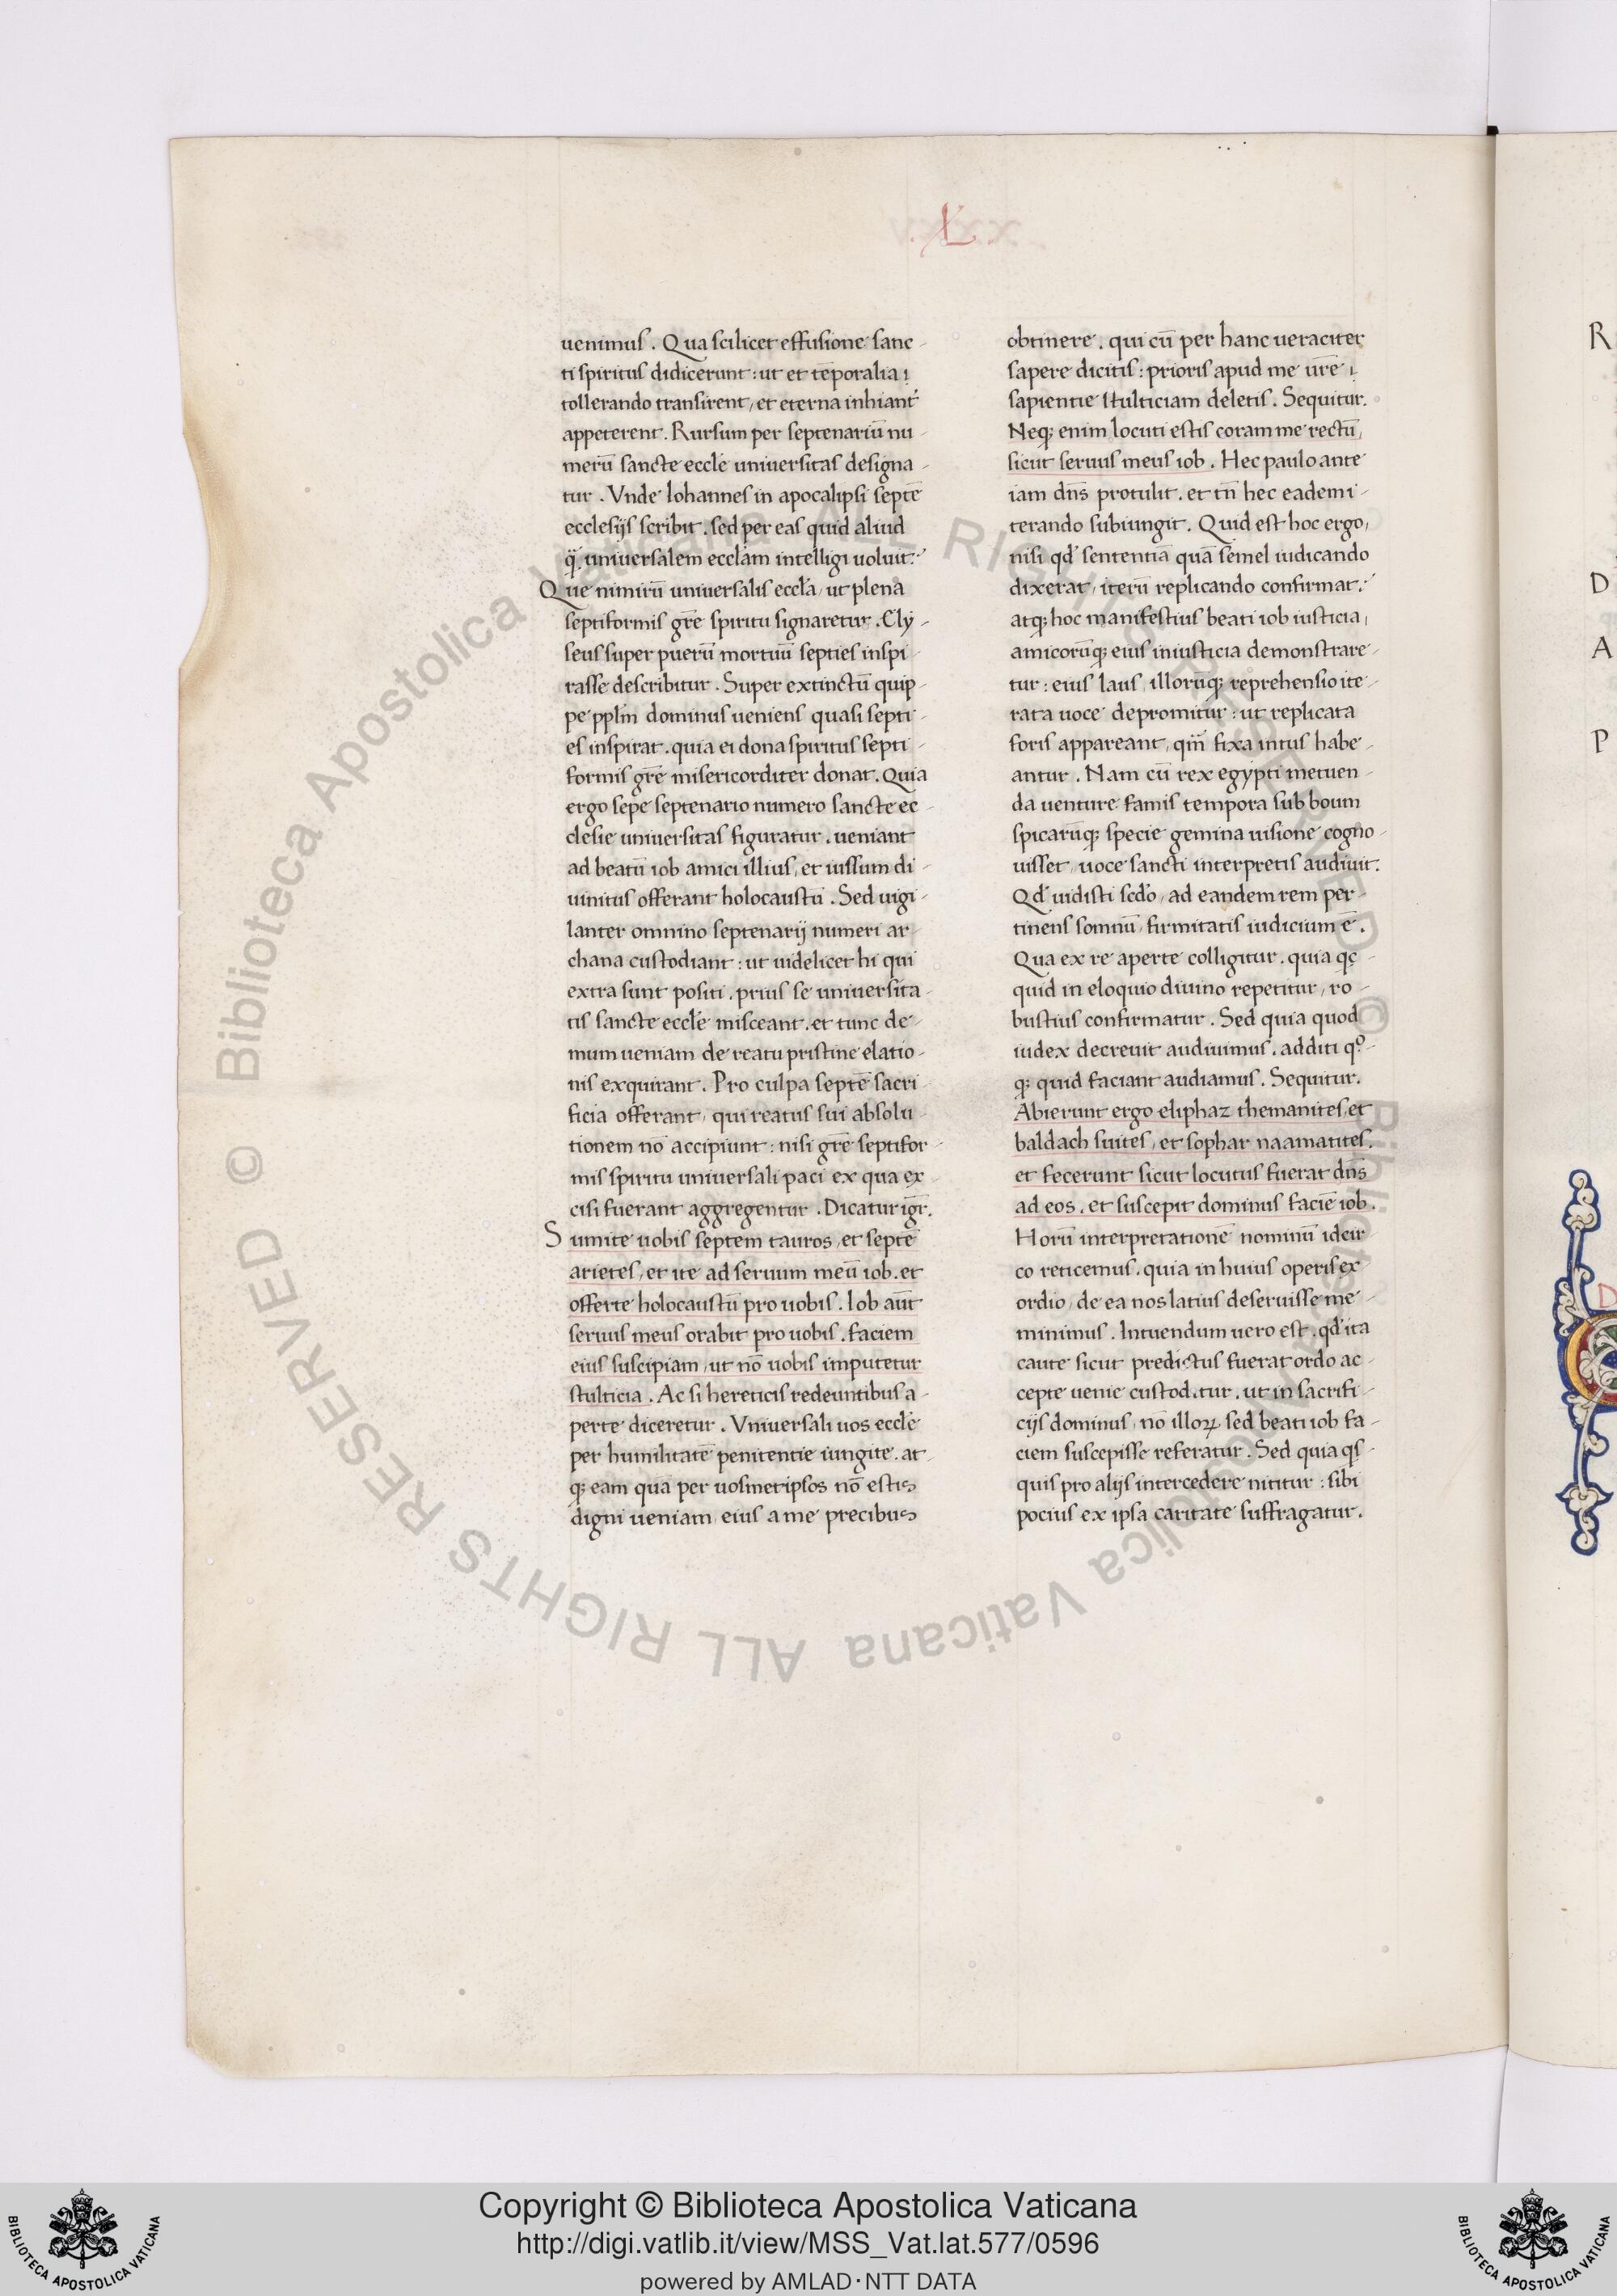 .L.
uenimus. Qua scilicet effusione sanc-
ti spiritus didicerunt: ut et tēporalia
tollerando transirent, et eterna inhiant̛
appeterent. Rursum per septenariū nu-
merū sancte eccłe uniuersitas designa-
tur. Vnde Iohannes in apocalipsi septē
ecclesijs scribit. sed per eas quid aliud
q̃ uniuersalem eccłam intelligi uoluit?
Que nimirū uniuersalis eccła, ut plena
septiformis grē spiritu signaretur. Ely-
seus super puerū mortuū septies inspi-
rasse describitur. Super extinctū quip-
pe pplm̄ dominus ueniens quasi septi-
es inspirat. quia ei dona spiritus septi-
formis grē misericorditer donat. Quia
ergo sepe septenario numero sancte ec-
clesie uniuersitas figuratur. ueniant
ad beatū iob amici illius, et iussum di-
uinitus offerant holocaustū. Sed uigi-
lanter omnino septenarij numeri ar-
chana custodiant: ut uidelicet hi qui
extra sunt positi. prius se uniuersita-
tis sancte eccłe misceant. et tunc de-
mum ueniam de reatu pristine elatio-
nis exquirant. Pro culpa septē sacri-
ficia offerant, qui reatus sui absolu-
tionem nō accipiunt: nisi grē septifor-
mis spiritu uniuersali paci ex qua ex-
cisi fuerant aggregentur. Dicatur igr̄.
Sumite uobis septem tauros, et septē
arietes, et ite ad seruum meū iob. et
offerte holocaustū pro uobis. Iob aūt
seruus meus orabit pro uobis. faciem
eius suscipiam, ut nō uobis imputetur
stulticia. Ac si hereticis redeuntibus a-
perte diceretur. Vniuersali uos eccłe
per humilitatē penitentie iungite. at-
q; eam quā per uosmetipsos nō estis
digni ueniam eius a me precibus
obtinere. qui cū per hanc ueraciter
sapere dicitis: prioris apud me ur̄e
sapientie stulticiam deletis. Sequitur.
Neq; enim locuti estis coram me rectū,
sicut seruus meus iob. Hec paulo ante
iam dn̄s protulit. et tn̄ hec eadem i-
terando subiungit. Quid est hoc ergo,
nisi qd̛ sententiā quā semel iudicando
dixerat, iterū replicando confirmat?
atq; hoc manifestius beati iob iusticia,
amicorūq; eius iniusticia demonstrare-
tur: eius laus, illorūq; reprehensio ite-
rata uoce depromitur: ut replicata
foris appareant, qm̄ fixa intus habe-
antur. Nam cū rex egypti metuen-
da uenture famis tempora sub boum
spicarūq; specie gemina uisione cogno-
uisset, uoce sancti interpretis audiuit.
Qd̛ uidisti scd̛o, ad eandem rem per-
tinens somnū, firmitatis iudicium ē.
Qua ex re aperte colligitur. quia qc̣-
quid in eloquio diuino repetitur, ro-
bustius confirmatur. Sed quia quod
iudex decreuit audiuimus. additi qº-
q; quid faciant audiamus. Sequitur.
Abierunt ergo eliphaz themanites, et
baldach suites, et sophar naamatites.
et fecerunt sicut locutus fuerat dn̄s
ad eos. et suscepit dominus faciē iob.
Horū interpretationē nominū idcir
co reticemus. quia in huius operis ex
ordio, de ea nos latius deseruisse me-
minimus. Intuendum uero est. qd̛ ita
caute sicut predictus fuerat ordo ac-
cepte uenie custoditur. ut in sacrifi-
cijs dominus, nō illoꝝ, sed beati iob fa-
ciem suscepisse referatur. Sed quia qs̛-
quis pro alijs intercedere nititur: sibi
pocius ex ipsa caritate suffragatur.
R
D
A
P
© Biblioteca Apostolica Vaticana ALL RIGHTS RESERVED © Biblioteca Apostolica Vaticana ALL RIGHTS RESERVED
BIBLIOTECA APOSTOLICA VATICANA
Copyright © Biblioteca Apostolica Vaticana
http://digi.vatlib.it/view/MSS_Vat.lat.577/0596
powered by AMLAD·NTT DATA
BIBLIOTECA APOSTOLICA VATICANA